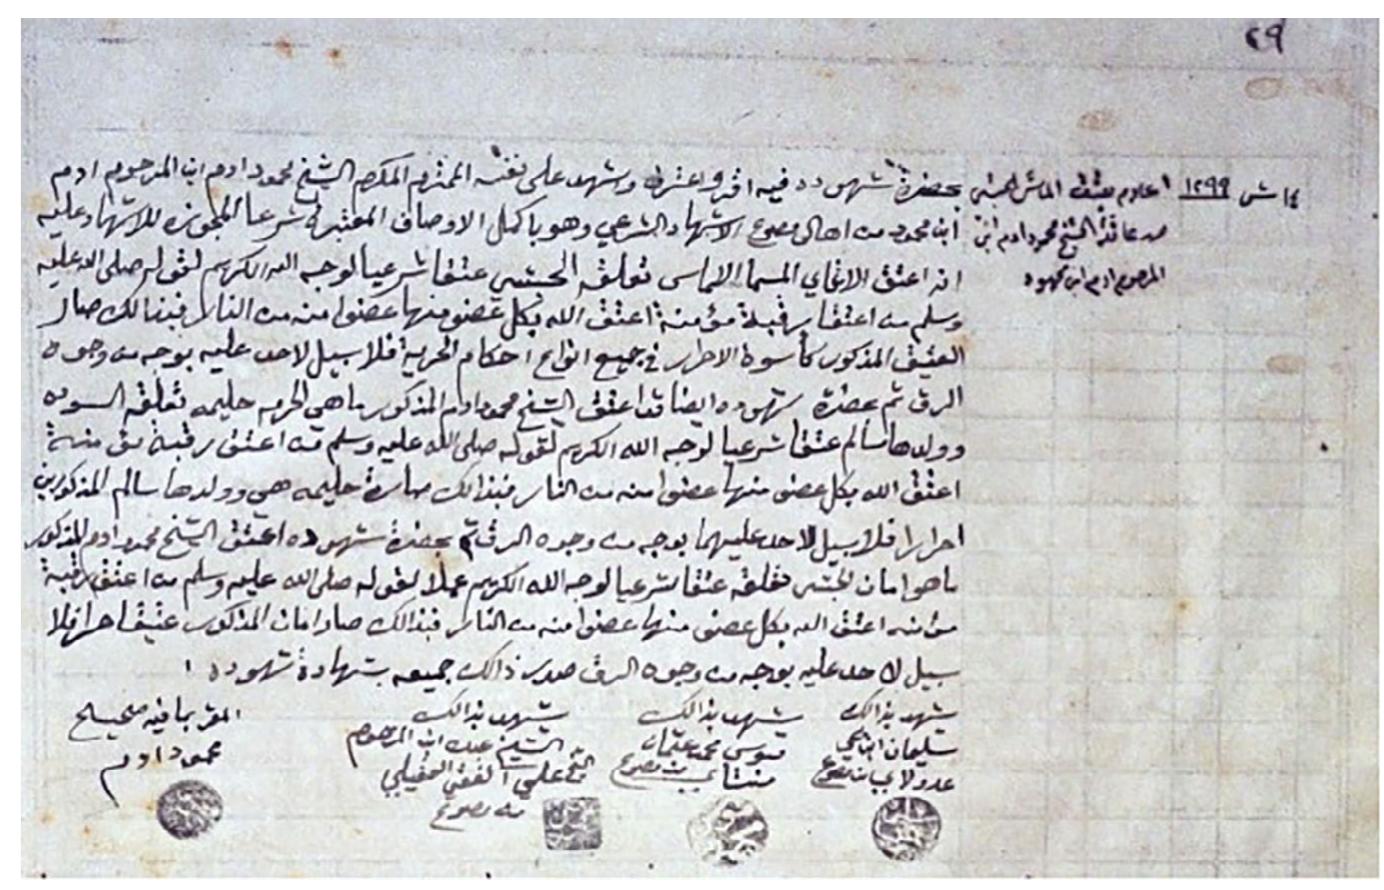 ٤٩
١٤ ش ١٢٩٩
اعلام بعتق الماس الحبشي
من عاقة الشيخ محمود ادم ابن
المرحوم ادم ابن محمود
بحضرة شهوده فيه اقر واعترف وشهد على نفسه المحترم المكرم الشيخ محمود ادم ابن المرحوم ادم
ابن محمود من اهالي مصوع الاشهاد الشرعي وهو باكمل الاوصاف المعتبرة شرعا المجوزة للاشهاد عليه
انه اعتق الاغاي المسما الالماسى تعلقه الحبشي عتقا شرعيا لوجه الله الكريم لقوله صلى الله عليه
وسلم من اعتقا رقبة مؤمنة اعتق الله بكل عضو منها عضوا منه من النار فبذالك صار
العتيق المذكور كأسوة الاحرار في جميع انواع احكام الحرية فلا سبيل لاحد عليه بوجه من وجوه
الرق ثم بحضرة شهوده ايضا قد اعتق الشيخ محمود ادم المذكور ما هي الحرمه حليمه تعلقه السوده
وولدها سالم عتقا شرعيا لوجه الله الكريم لقوله صلى الله عليه وسلم من اعتق رقبة مؤمنة
اعتق الله بكل عضو منها عضوا منه من النار فبذالك صارة حليمه هي وولدها سالم المذكورين
احرارا فلا سبيل لاحد عليهما بوجه من وجوه الرق ثم بحضرة شهوده اعتق الشيخ محمود ادم المذكور
ما هو امان الحبشي تعلقه عتقا شرعيا لوجه الله الكريم عملا لقوله صلى الله عليه وسلم من اعتق رقبة
مؤمنه اعتق الله بكل عضو منها عضوا منه من النار فبذالك صار امان المذكور عتيقا حرا فلا
سبيل لاحد عليه بوجه من وجوه الرق صدر ذالك جميعه بشهادة شهوده
شهد بذالك
سليمان ابن يحي
عدولاي بمصوع
شهد بذالك
موسى محمد عثمان
بمصوع
شهد بذالك
الشيخ عبد ابن المرحوم
علي الفقي العقيلي
من مصوع
المقر بما فيه صحيح
محمود ادم